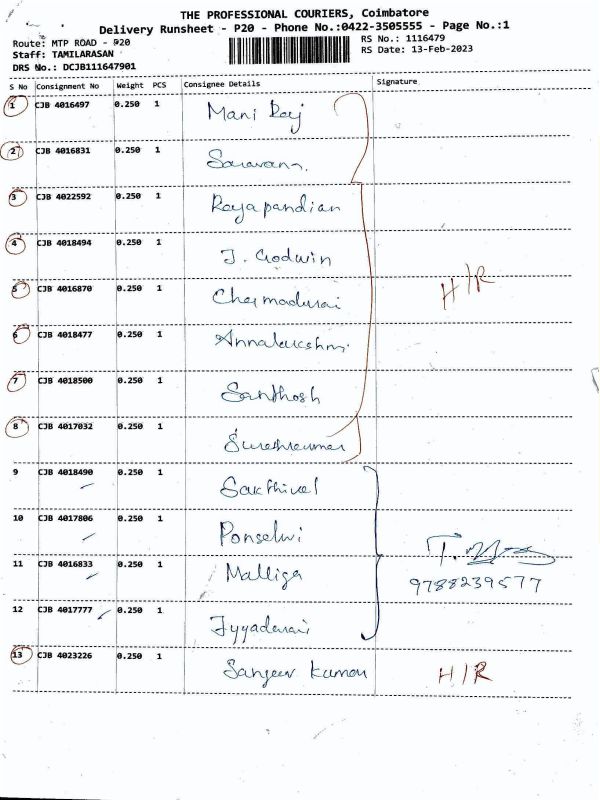 THE PROFESSIONAL COURIERS, Coimbatore
Delivery Runsheet - P20 - Phone No.:0422-3505555 - Page No.:1
Route: MTP ROAD - P20
RS No.: 1116479
Staff: TAMILARASAN
RS Date: 13-Feb-2023
DRS No.: DCJB111647901
S No Consignment No Weight PCS Consignee Details Signature
1 CJB 4016497 0.250 1 Mani Raj
2 CJB 4016831 0.250 1 Saravana.
3 CJB 4022592 0.250 1 Rajapandian
4 CJB 4018494 0.250 1 J. Godwin
5 CJB 4016870 0.250 1 H/R
6 CJB 4018477 0.250 1
7 CJB 4018500 0.250 1 Santhosh
8 CJB 4017032 0.250 1 Sureshkumar
9 CJB 4018490 0.250 1 Sakthivel
10 CJB 4017806 0.250 1 Ponselvi
11 CJB 4016833 0.250 1 Malliga 9788239577
12 CJB 4017777 0.250 1 Iyyadurai
13 CJB 4023226 0.250 1 Sanjeev Kumar H/R